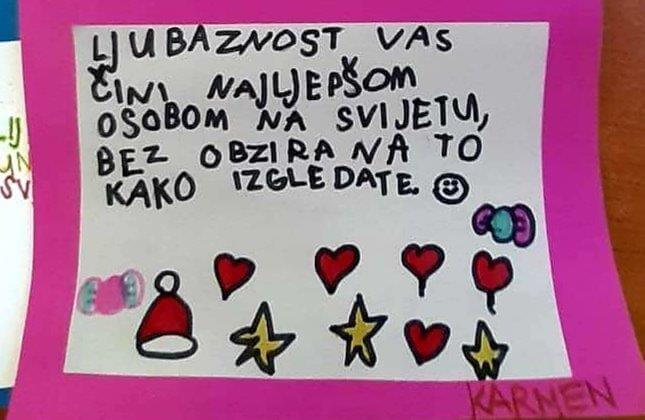 LJUBAZNOST VAS
ČINI NAJLJEPŠOM
OSOBOM NA SVIJETU,
BEZ OBZIRA NA TO
KAKO IZGLEDATE. ☺
KARMEN